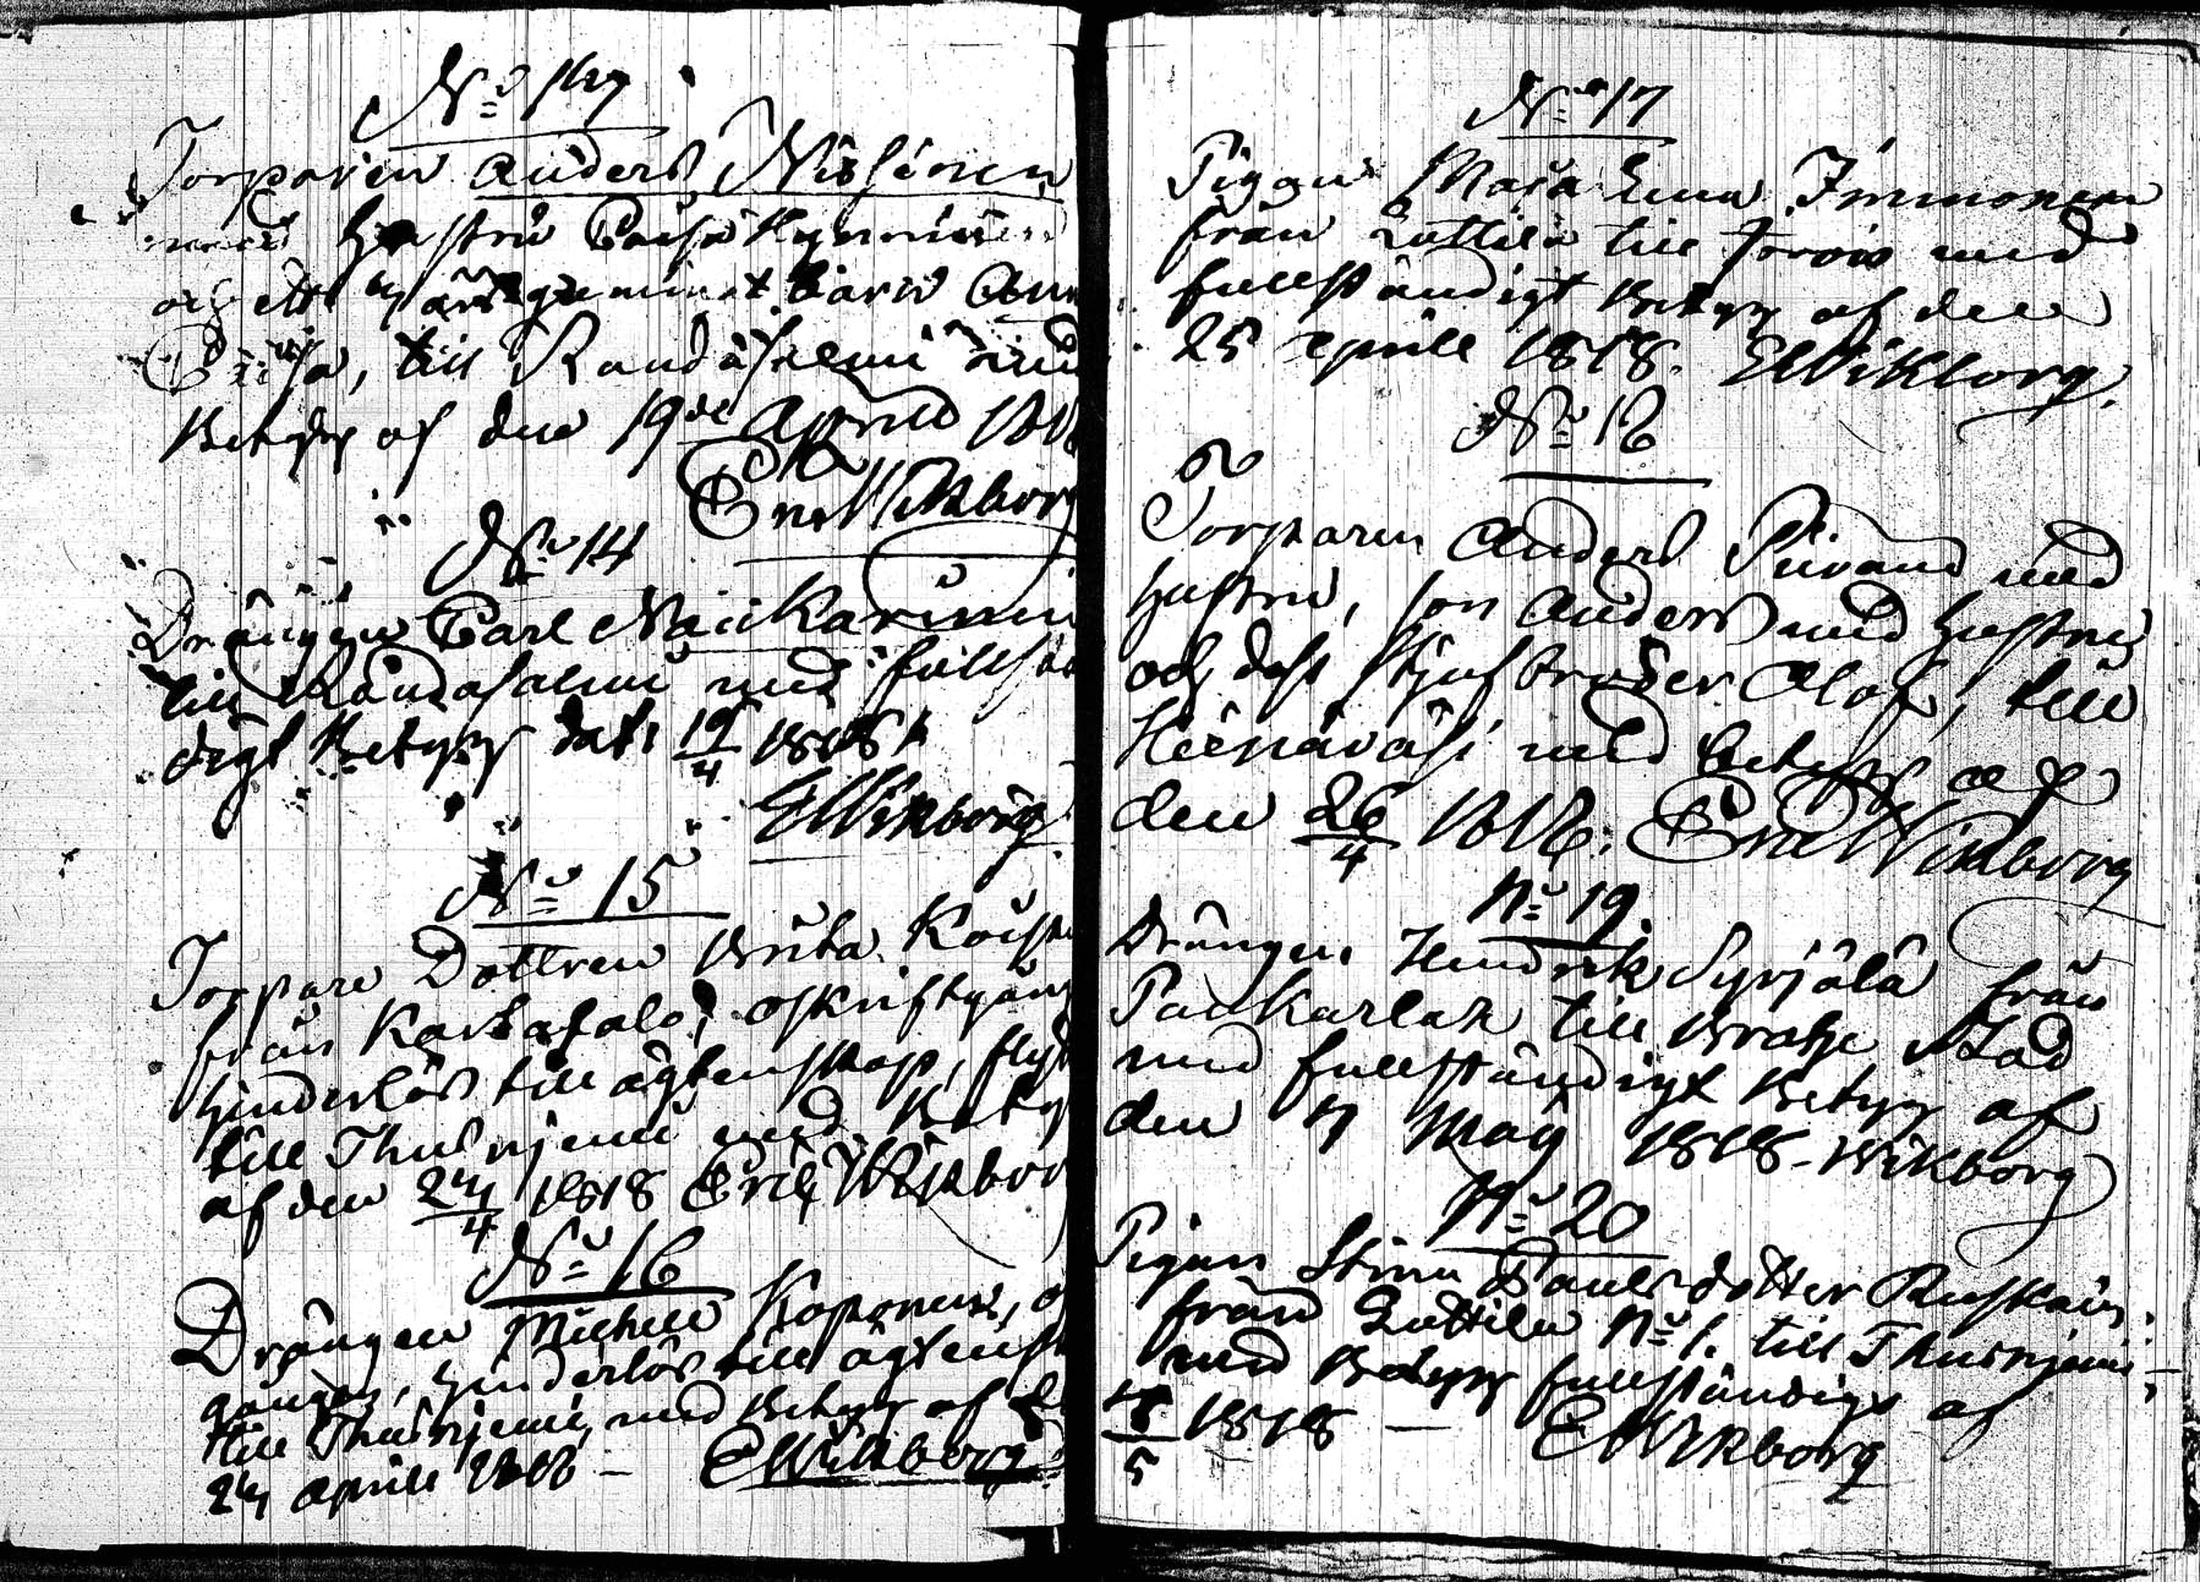 Torparen Anders Nissinen
med Hustru Caisa Kymmäinen
och ett årsgammalt barn Ann
Caisa, till Randasalmi med
Betyg af den 19de Aprill 1818
Eric Wikborg
No 14
Drängen Carl Naukarinen
till Randasalmi med fullstän
digt Betyg dat. 19/4 1818
EWikborg
No 15
Torpare Dottren Brita
från Karbasalo, oskriftgång
hinderlös till ägtenskap, flyt
till Thusnjemi med Betyg
af den 24/4 1818 Eric Wikborg
No 16
Drängen Michell Koponen, o
gången, hinderlös till ägtensk
till Thusnjemi, med Betyg af d
24 Aprill 1818 – EWikborg
No 17
Pigan Maja Lena Immonen
från Luttila till Jorois med
fullständigt Betyg af den
25 Aprill 1818. EWikborg.
No 18
Torparen Anders Piirand med
Hustru, son Anders med Hustru
och dess Styfbroder Olof, till
Heinäväsi med betyg af
den 26/4 1818. Eric Wikborg
No 19.
Drängen Hendrik Syrjälä från
Paukarlax till Brahe Stad
med fullständigt Betyg af
den 4 Maij 1818 - Wikborg
No 20
Pigan Stina Paulsdotter
från Luttila No 1. till Thusnjemi
med Betyg fullständigt af
5 1818 — EWikborg